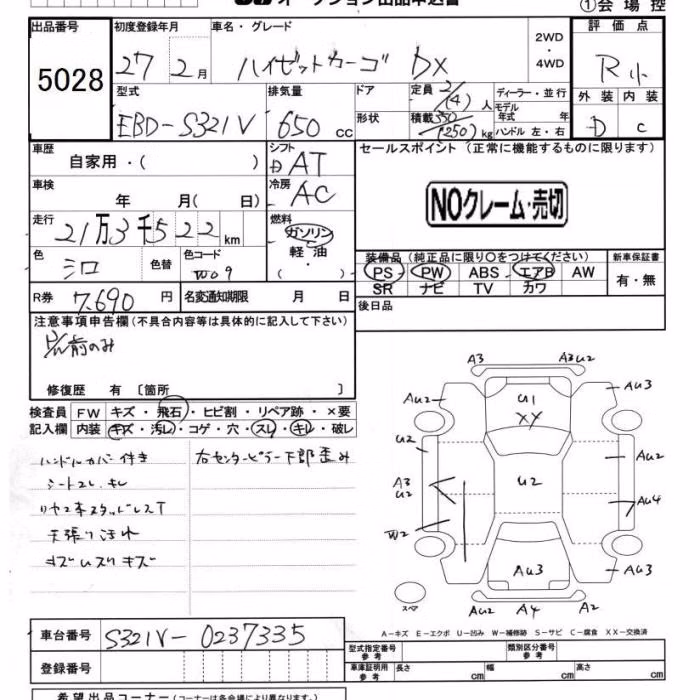 オークション出品申込書
①会場控
出品番号 5028
初度登録年月 27 2月
車名・グレード ハイゼットカーゴ DX
2WD・4WD
評価点 R小
型式 EBD-S321V
排気量 650cc
ドア
形状
定員 2/(4)人
積載 350/(250)kg
ディーラー・並行
モデル年式 年
ハンドル 左・右
外装 D
内装 C
車歴 自家用・( )
シフト AT
セールスポイント(正常に機能するものに限ります)
NOクレーム・売切
車検 年 月( 日)
冷房 AC
走行 21万3千522km
燃料 ガソリン 軽油 ・( )
色 シロ 色替
色コード W09
装備品(純正品に限り○をつけてください)
新車保証書 有・無
PS PW ABS エアB AW
SR ナビ TV カワ
R券 7,690円
名変通知期限 月 日
後日品
注意事項申告欄(不具合内容等は具体的に記入して下さい)
修復歴 有 [箇所 ]
検査員記入欄
FW キズ・飛石・ヒビ割・リペア跡・×要
内装 キズ・汚レ・コゲ・穴・スレ・キレ・破レ
ハンドルカバー付き
シートスレ、キレ
リヤ2本スタッドレスT
天張り汚れ
右センターピラー下部歪み
A3 A3U2
AU2 U1 AU3
XY
U2 AU2
A3 U2 U2
AU4
W2
AU3 AU3
スペア AU2 A4 A2
A-キズ E-エクボ U-凹み W-補修跡 S-サビ C-腐食 XX-交換済
車台番号 S321V-0237335
型式指定番号 参考
類別区分番号 参考
登録番号
車庫証明用 参考 長さ cm 幅 cm 高さ cm
希望出品コーナー(コーナーは各会場により異なります。)